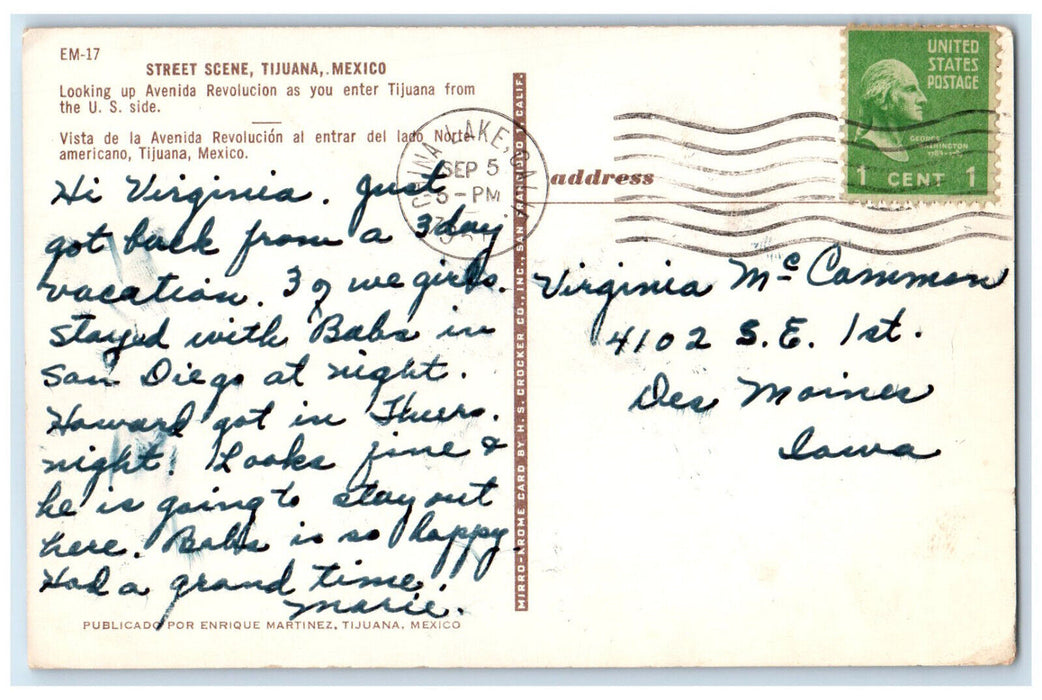 EM-17
STREET SCENE, TIJUANA, MEXICO
Looking up Avenida Revolucion as you enter Tijuana from
the U. S. side.
Vista de la Avenida Revolución al entrar del lado Norte-
americano, Tijuana, Mexico.
Hi Virginia. Just
got back from a 3 day
vacation. 3 of we girls.
stayed with Babs in
San Diego at night.
Howard got in Thurs.
night. Looks fine &
he is going to stay out
here. Babs is so happy.
Had a grand time.
Marie.
PUBLICADO POR ENRIQUE MARTINEZ, TIJUANA, MEXICO
MIRRO-KROME CARD BY H. S. CROCKER CO., INC., SAN FRANCISCO 1, CALIF.
LAKE,
SEP 5
5-PM
address
UNITED
STATES
POSTAGE
GEORGE
WASHINGTON
1 CENT 1
Virginia McCammon
4102 S.E. 1st.
Des Moines
Iowa